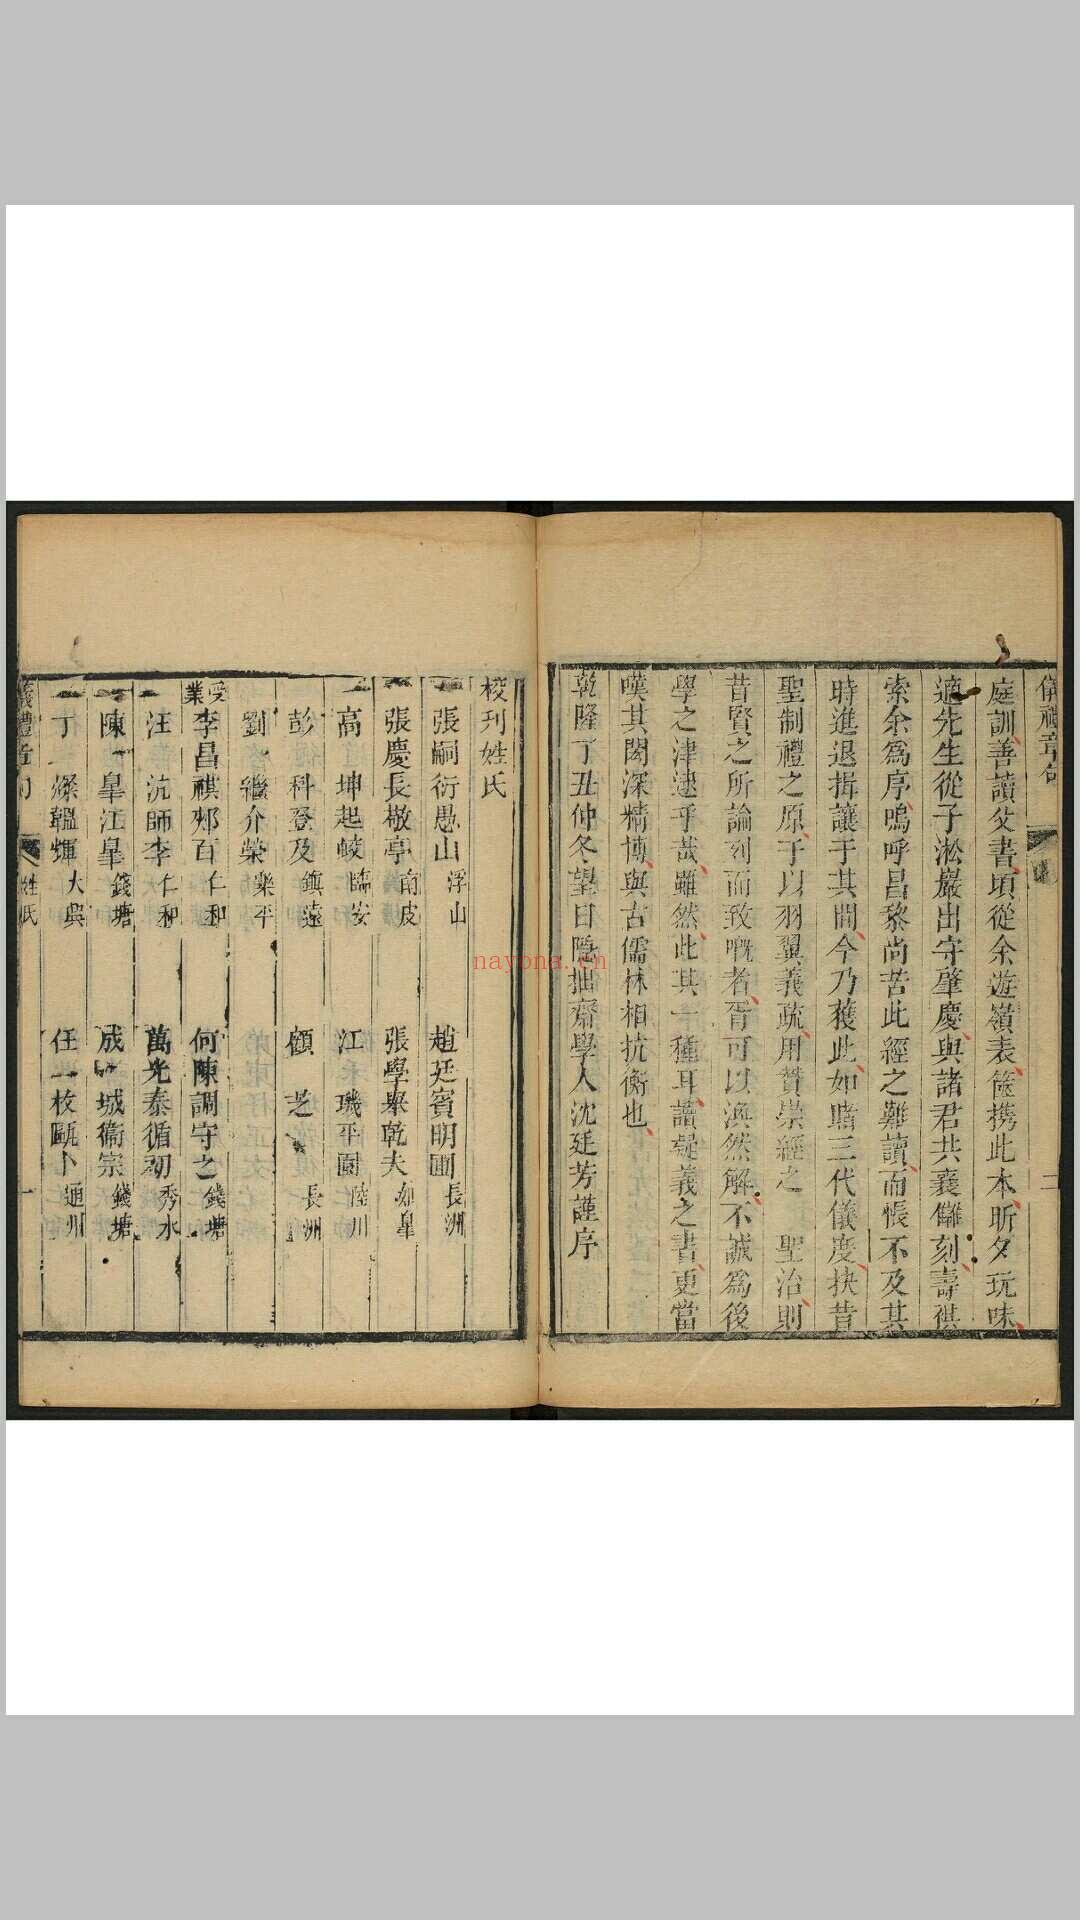 儀禮章句
二
庭訓善讀父書頃從余遊嶺表篋携此本昕夕玩味
適先生從子淞巖出守肇慶與諸君共襄讎刻壽祺
索余爲序嗚呼昌黎尚苦此經之難讀而悵不及其
時進退揖讓于其間今乃獲此如睹三代儀度抉昔
聖制禮之原于以羽翼義疏用贊崇經之 聖治則
昔賢之所論列而致嘅者胥可以渙然解不誠爲後
學之津逮乎哉雖然此其一種耳讀疑義之書更當
嘆其閎深精博與古儒林相抗衡也
乾隆丁丑仲冬望日隱拙齋學人沈廷芳謹序
校刋姓氏
張嗣衍愚山 浮山 趙廷賓明圃 長洲
張慶長敬亭 南皮 張學舉乾夫 如皐
高 坤起峻 臨安 江 璣平圃 陸川
彭 科登及 鎮遠 顧 芝 長洲
劉 繼介榮 樂平
受業 李昌祺郟百 仁和 何陳調守之 錢塘
汪 沆師李 仁和 萬光泰循初 秀水
陳 臯江臯 錢塘 成 城衞宗 錢塘
丁 燦韞輝 大興 任一枚甌卜 通州
儀禮章句 姓氏 一
nayona.cn